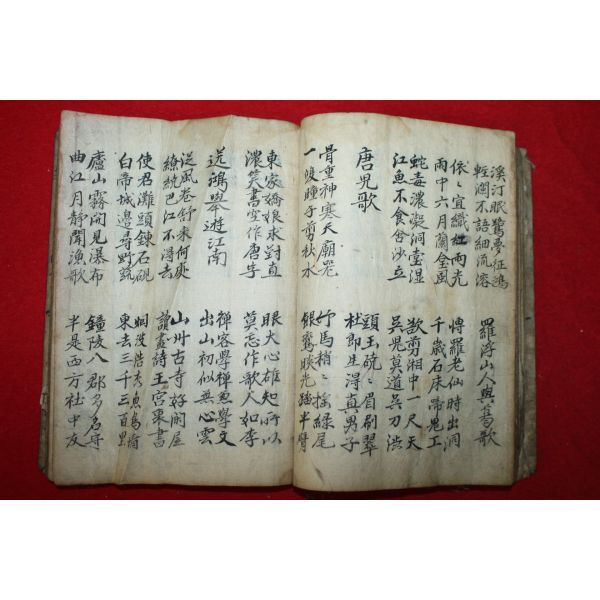 溪汀眠鷺夢征鴻
輕漣不語細流溶
羅浮山人與葛歌
依〻宜織紅雨光
雨中六月蘭全風
博羅老仙時出洞
千歲石床啼鬼工
蛇毒濃凝洞堂湿
江魚不食含沙立
欲剪湘中一尺天
吳児莫道吳刀渋
唐児歌
頭玉硗〻眉刷翠
杜郎生得真男子
骨重神寒天廟器
一雙瞳子剪秋水
竹馬梢〻搖綠尾
銀鸞睒光踏半臂
東家嬌娘求對直
濃笑書空作唐字
眼大心雄知所以
莫忘作歌人如李
送鴻舉遊江南
禪客學禪兼學文
出山初似無心雲
從風卷舒来何處
繚繞巴江不得去
山州古寺好閑居
讀盡詩王宮裏書
使君灘頭鍊石硯
白帝城邊尋野蔬
烟波浩〻魚鳥情
東去三千三百里
廬山霧開見瀑布
曲江月靜聞漁歌
鐘陵八郡多名守
半是西方社中友